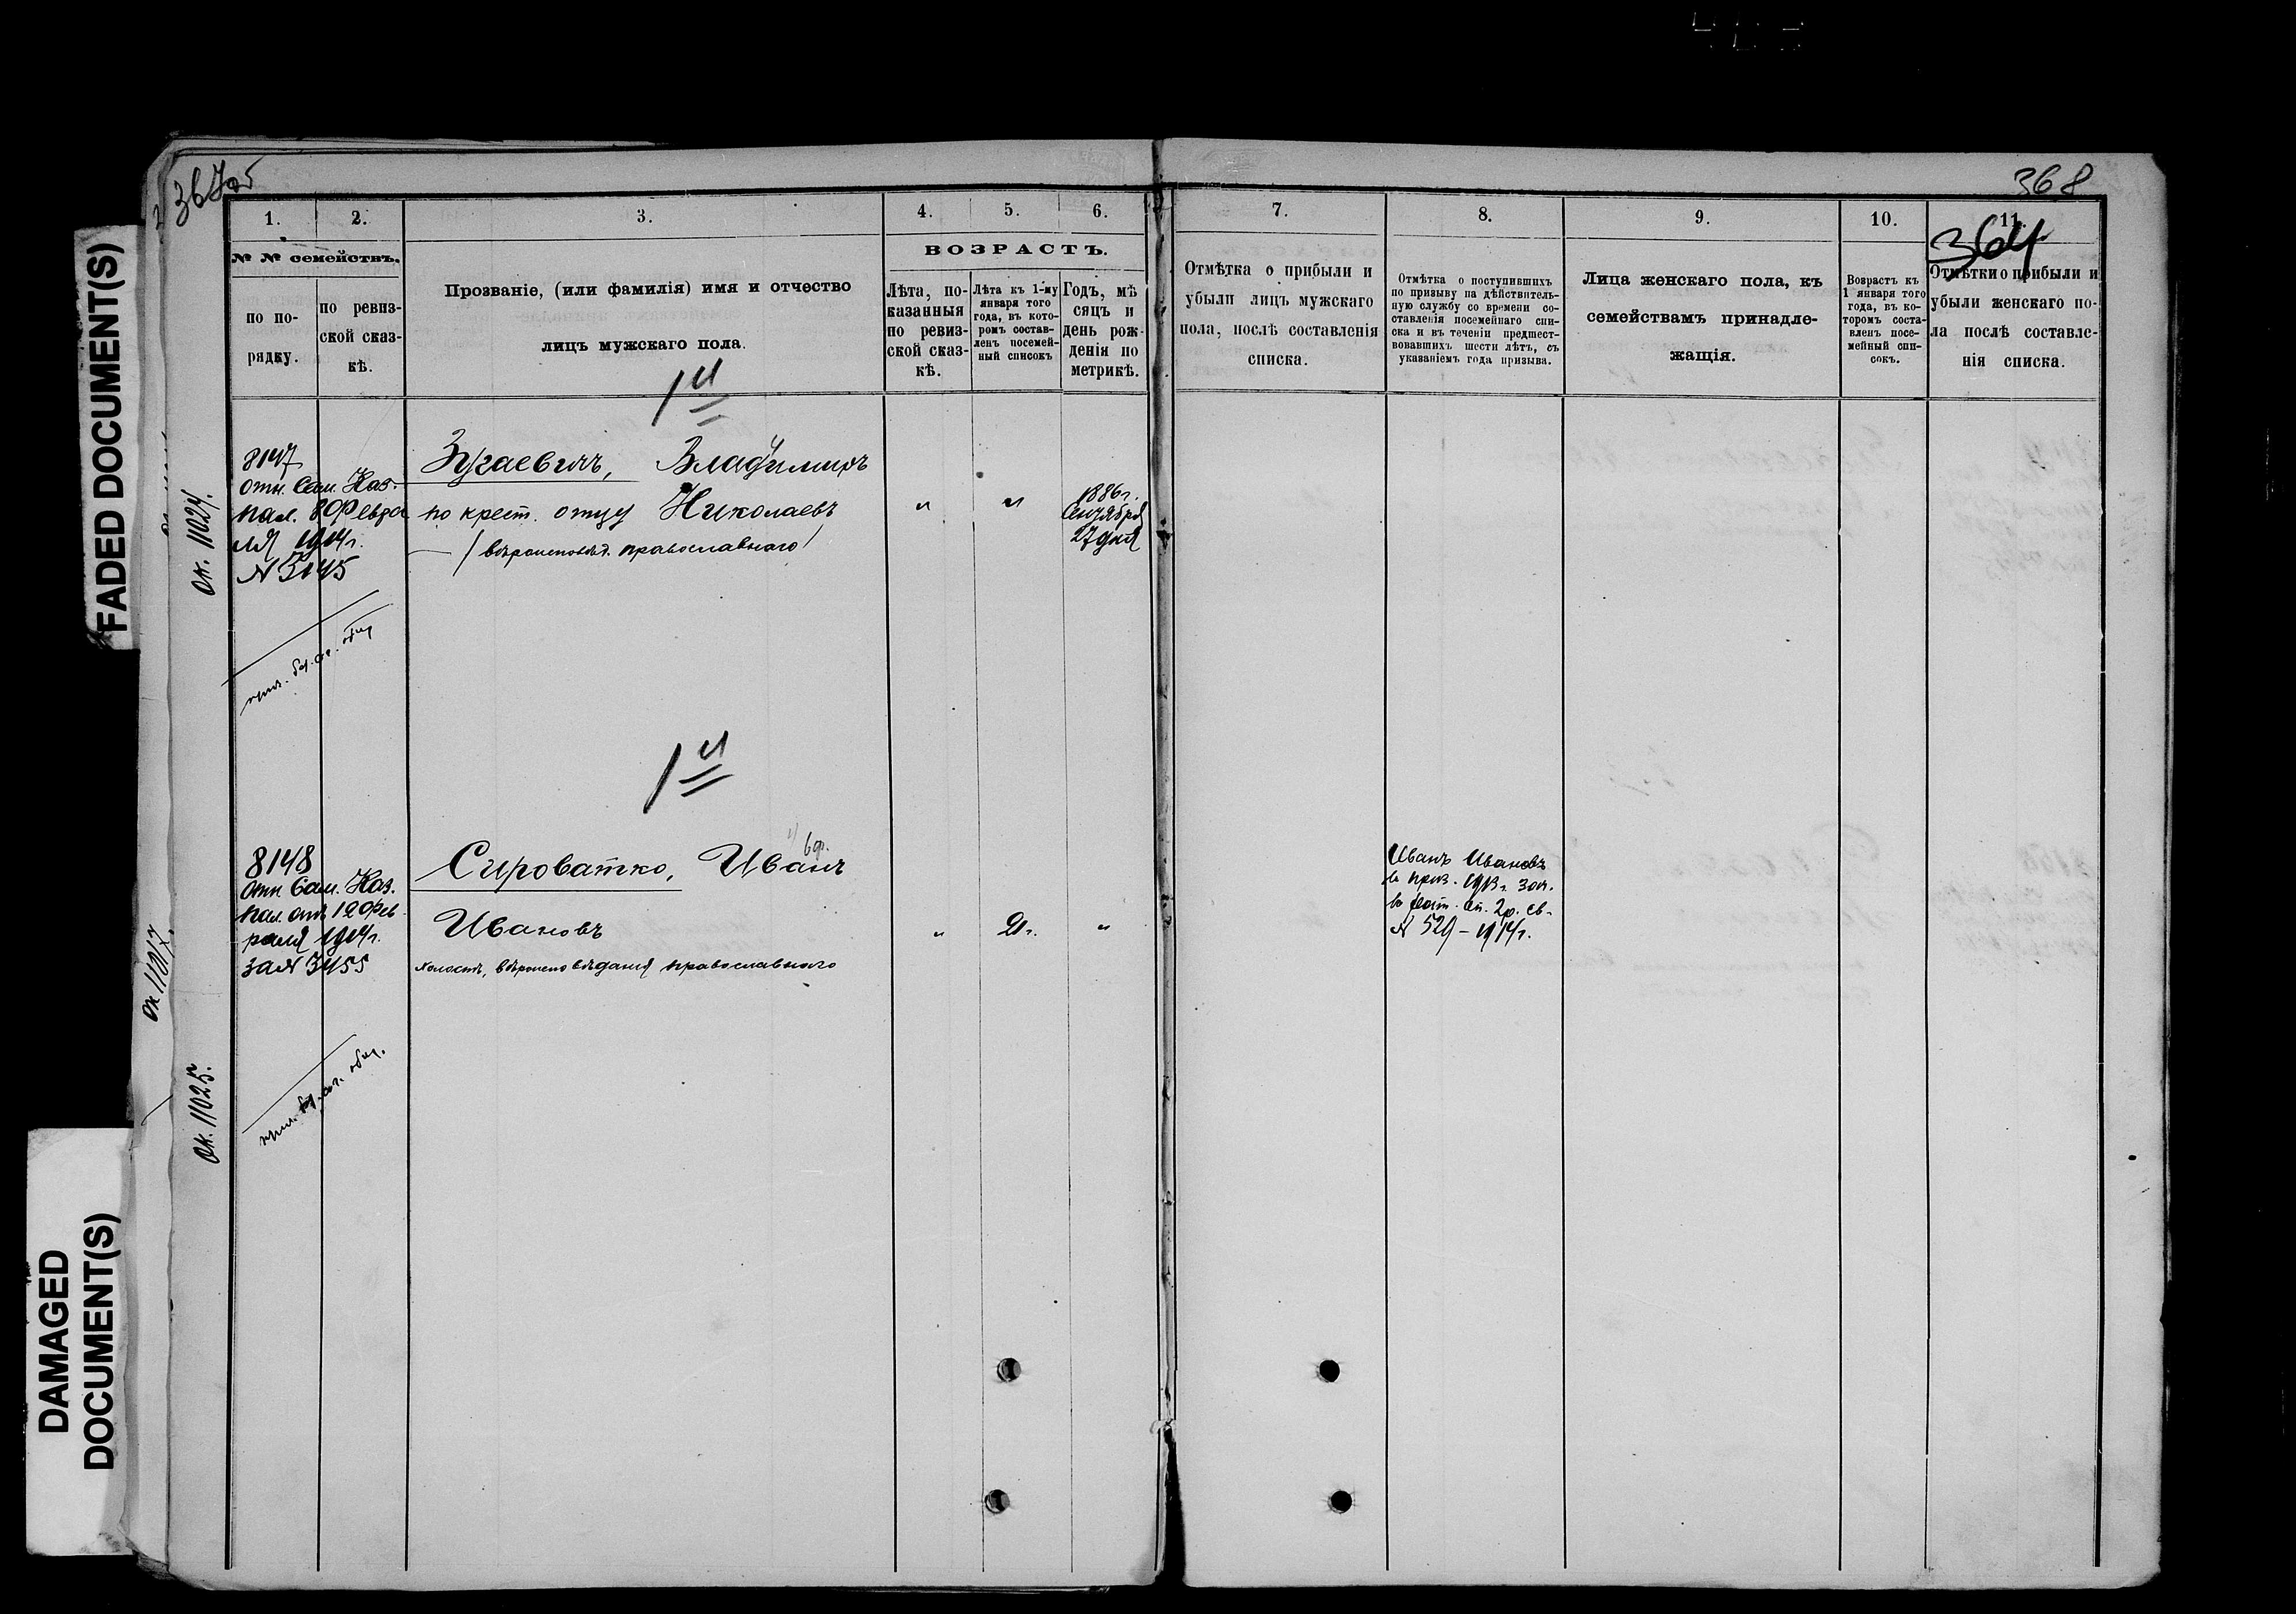 FADED DOCUMENT(S)
DAMAGED
DOCUMENT(S)
367об
368
364
1.
2.
3.
4.
5.
6.
7.
8.
9.
10.
11.
№ № семействъ.
по по-
рядку.
по ревиз-
ской сказ-
кѣ.
Прозваніе, (или фамилія) имя и отчество
лицъ мужскаго пола.
ВОЗРАСТЪ.
Лѣта, по-
казанныя
по ревиз-
ской сказ-
кѣ.
Лѣта къ 1-му
января того
года, въ кото-
ромъ состав-
ленъ посемей-
ный списокъ
Годъ, мѣ
сяцъ и
день рож-
денія по
метрикѣ.
Отмѣтка о прибыли и
убыли лицъ мужскаго
пола, послѣ составленія
списка.
Отмѣтка о поступившихъ
по призыву на дѣйствитель-
ную службу со времени со-
ставленія посемейнаго спи-
ска и въ теченіи предшест-
вовавшихъ шести лѣтъ, съ
указаніемъ года призыва.
Лица женскаго пола, къ
семействамъ принадле-
жащія.
Возрастъ къ
1 января того
года, въ ко-
торомъ соста-
вленъ посе-
мейный спи-
сокъ.
Отмѣтки о прибыли и
убыли женскаго по-
ла послѣ составле-
нія списка.
1й
8147
отн. Сам. Каз.
пал. 8 Февра
ля 1914г.
N 3145
Зугаевичъ, Владимиръ
по крест. отцу Николаевъ
/ вѣроисповѣд. православнаго /
" "
1886г.
Сентября
27 дня
Ок. 11024.
1й
8148
отн Сам. Каз.
пал. отъ 12 Фев-
раля 1914г.
за N 3455
Сироватко, Иванъ
Ивановъ
холостъ, вѣроисповѣданія православнаго
" 21г. "
Иванъ Ивановъ
въ приз. 1913г. зач.
N 529 – 1914г.
Ок 11017.
Ок. 11025.